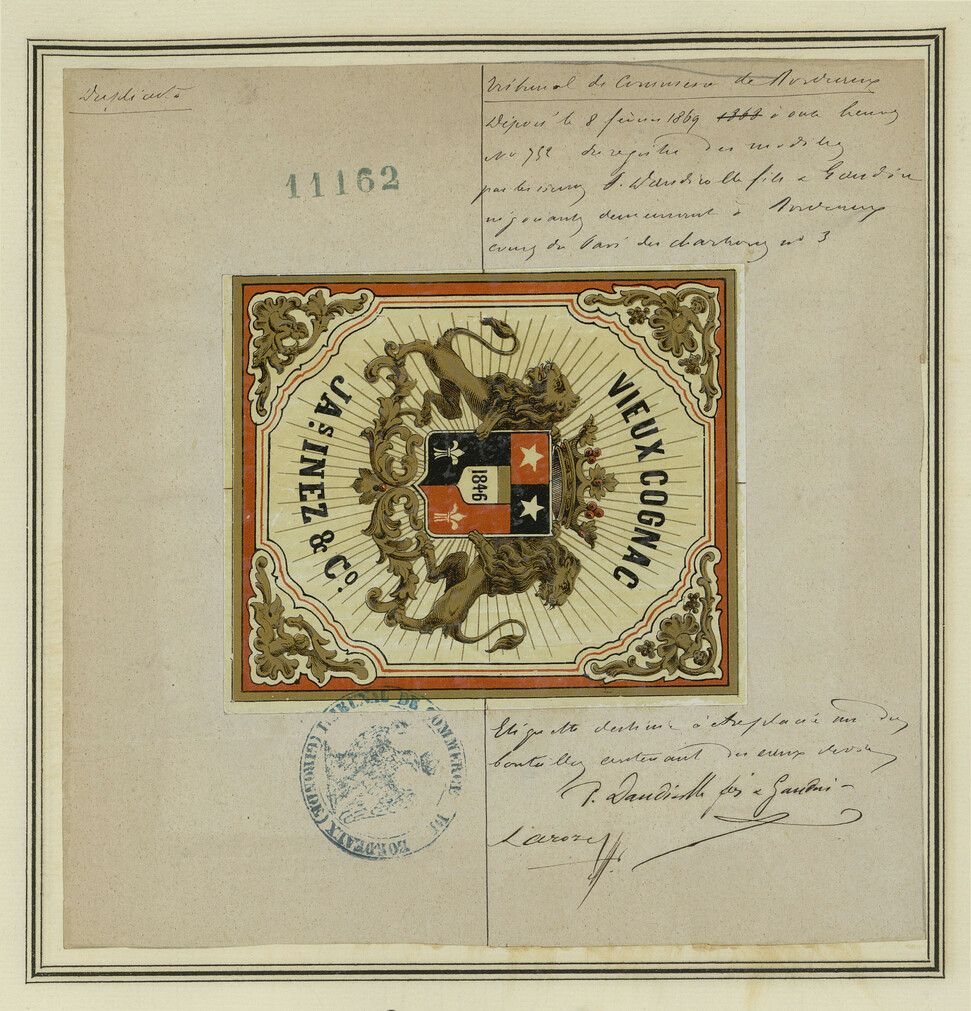 Duplicata
11162
Tribunal de Commerce de Bordeaux
Déposé le 8 février 1869 1868 à onze heures
No 752 du registre des modèles
par les sieurs P. Dandicolle fils & Gaudin
négociants demeurant à Bordeaux
cours du Pavé des chartrons no 3
VIEUX COGNAC
1846
JAS INEZ & Co.
Etiquette destinée à être placée sur des
bouteilles contenant des eaux de vie
P. Dandicolle fils & Gaudin
Laroze
TRIBUNAL DE COMMERCE DE BORDEAUX (GIRONDE)